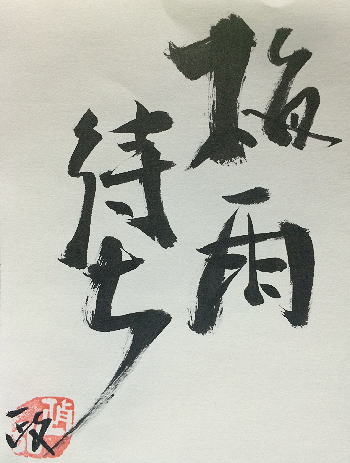 梅雨
待ち